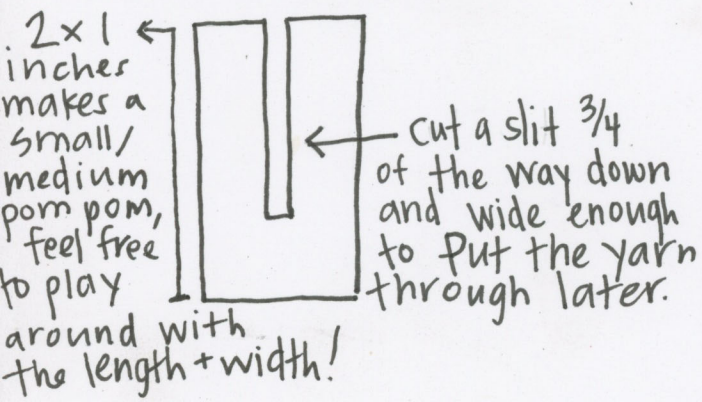 2 x 1
inches
makes a
small/
medium
pom pom,
feel free
to play
around with
the length + width!
cut a slit 3/4
of the way down
and wide enough
to put the yarn
through later.